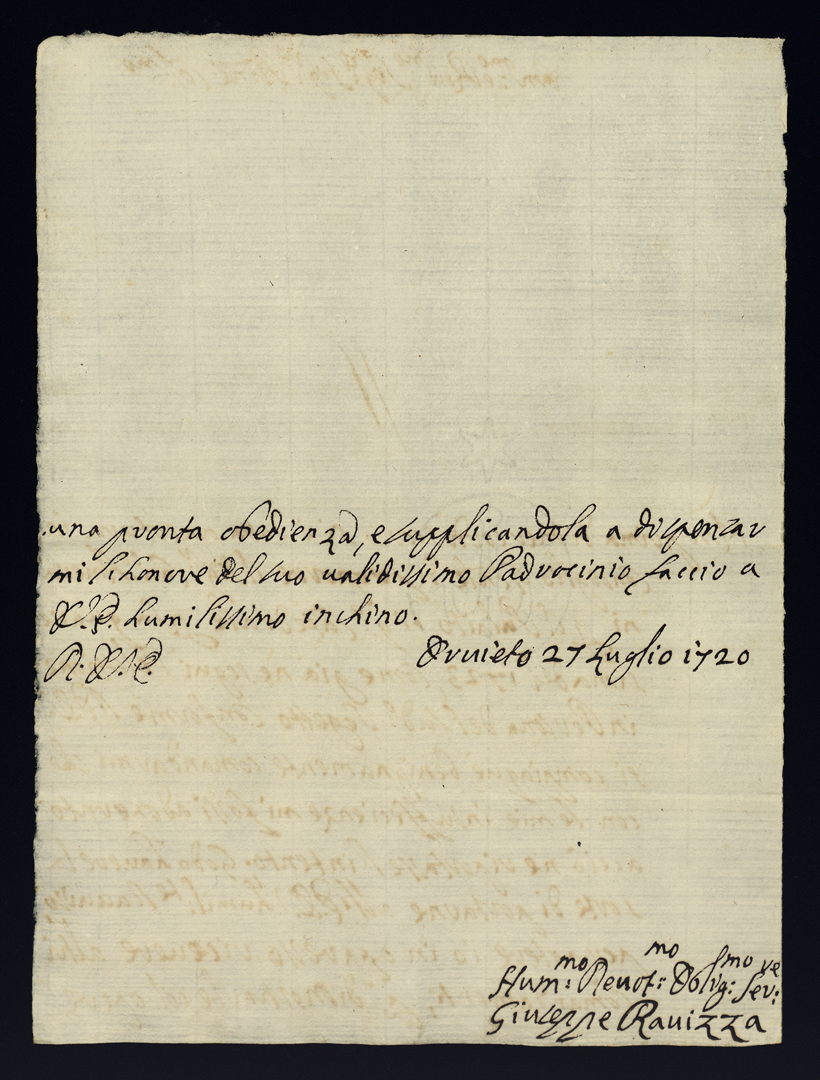 una pronta obedienza, e supplicandola a dispenzar
mi l'honore del suo validissimo Padrocinio faccio a
V.E. humilissimo inchino.
D. V.E. Orvieto 27 Luglio 1720
Hum:mo Devot:mo Oblig:smo Ser:re
Giuseppe Ravizza